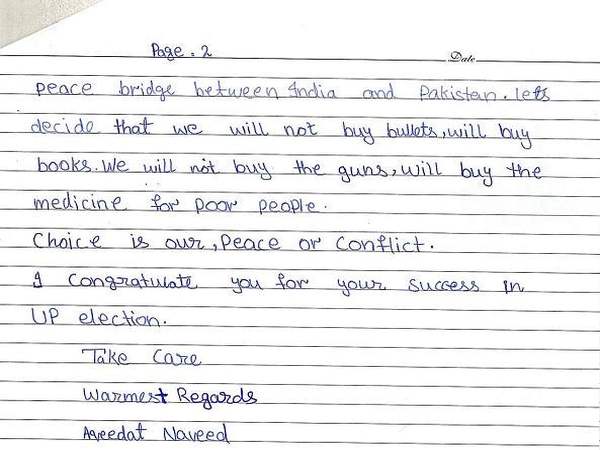 Page. 2
Date
peace bridge between India and Pakistan. lets
decide that we will not buy bullets, will buy
books. We will not buy the guns, will buy the
medicine for poor people.
Choice is our, Peace or Conflict.
I Congratulate you for your success in
UP election.
Take Care
Warmest Regards
Aqeedat Naveed